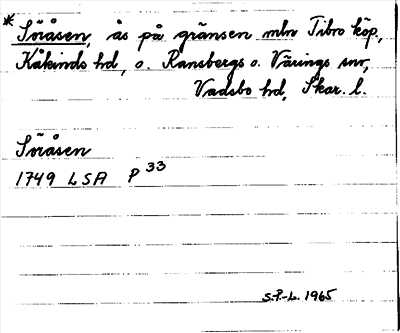 * Söråsen, ås på gränsen mln Tibro köp,
Kåkinds hd, o. Ransbergs o. Värings snr,
Vadsbo hd, Skar. l.
Söråsen
1749 LSA P 33
S.P.-L. 1965